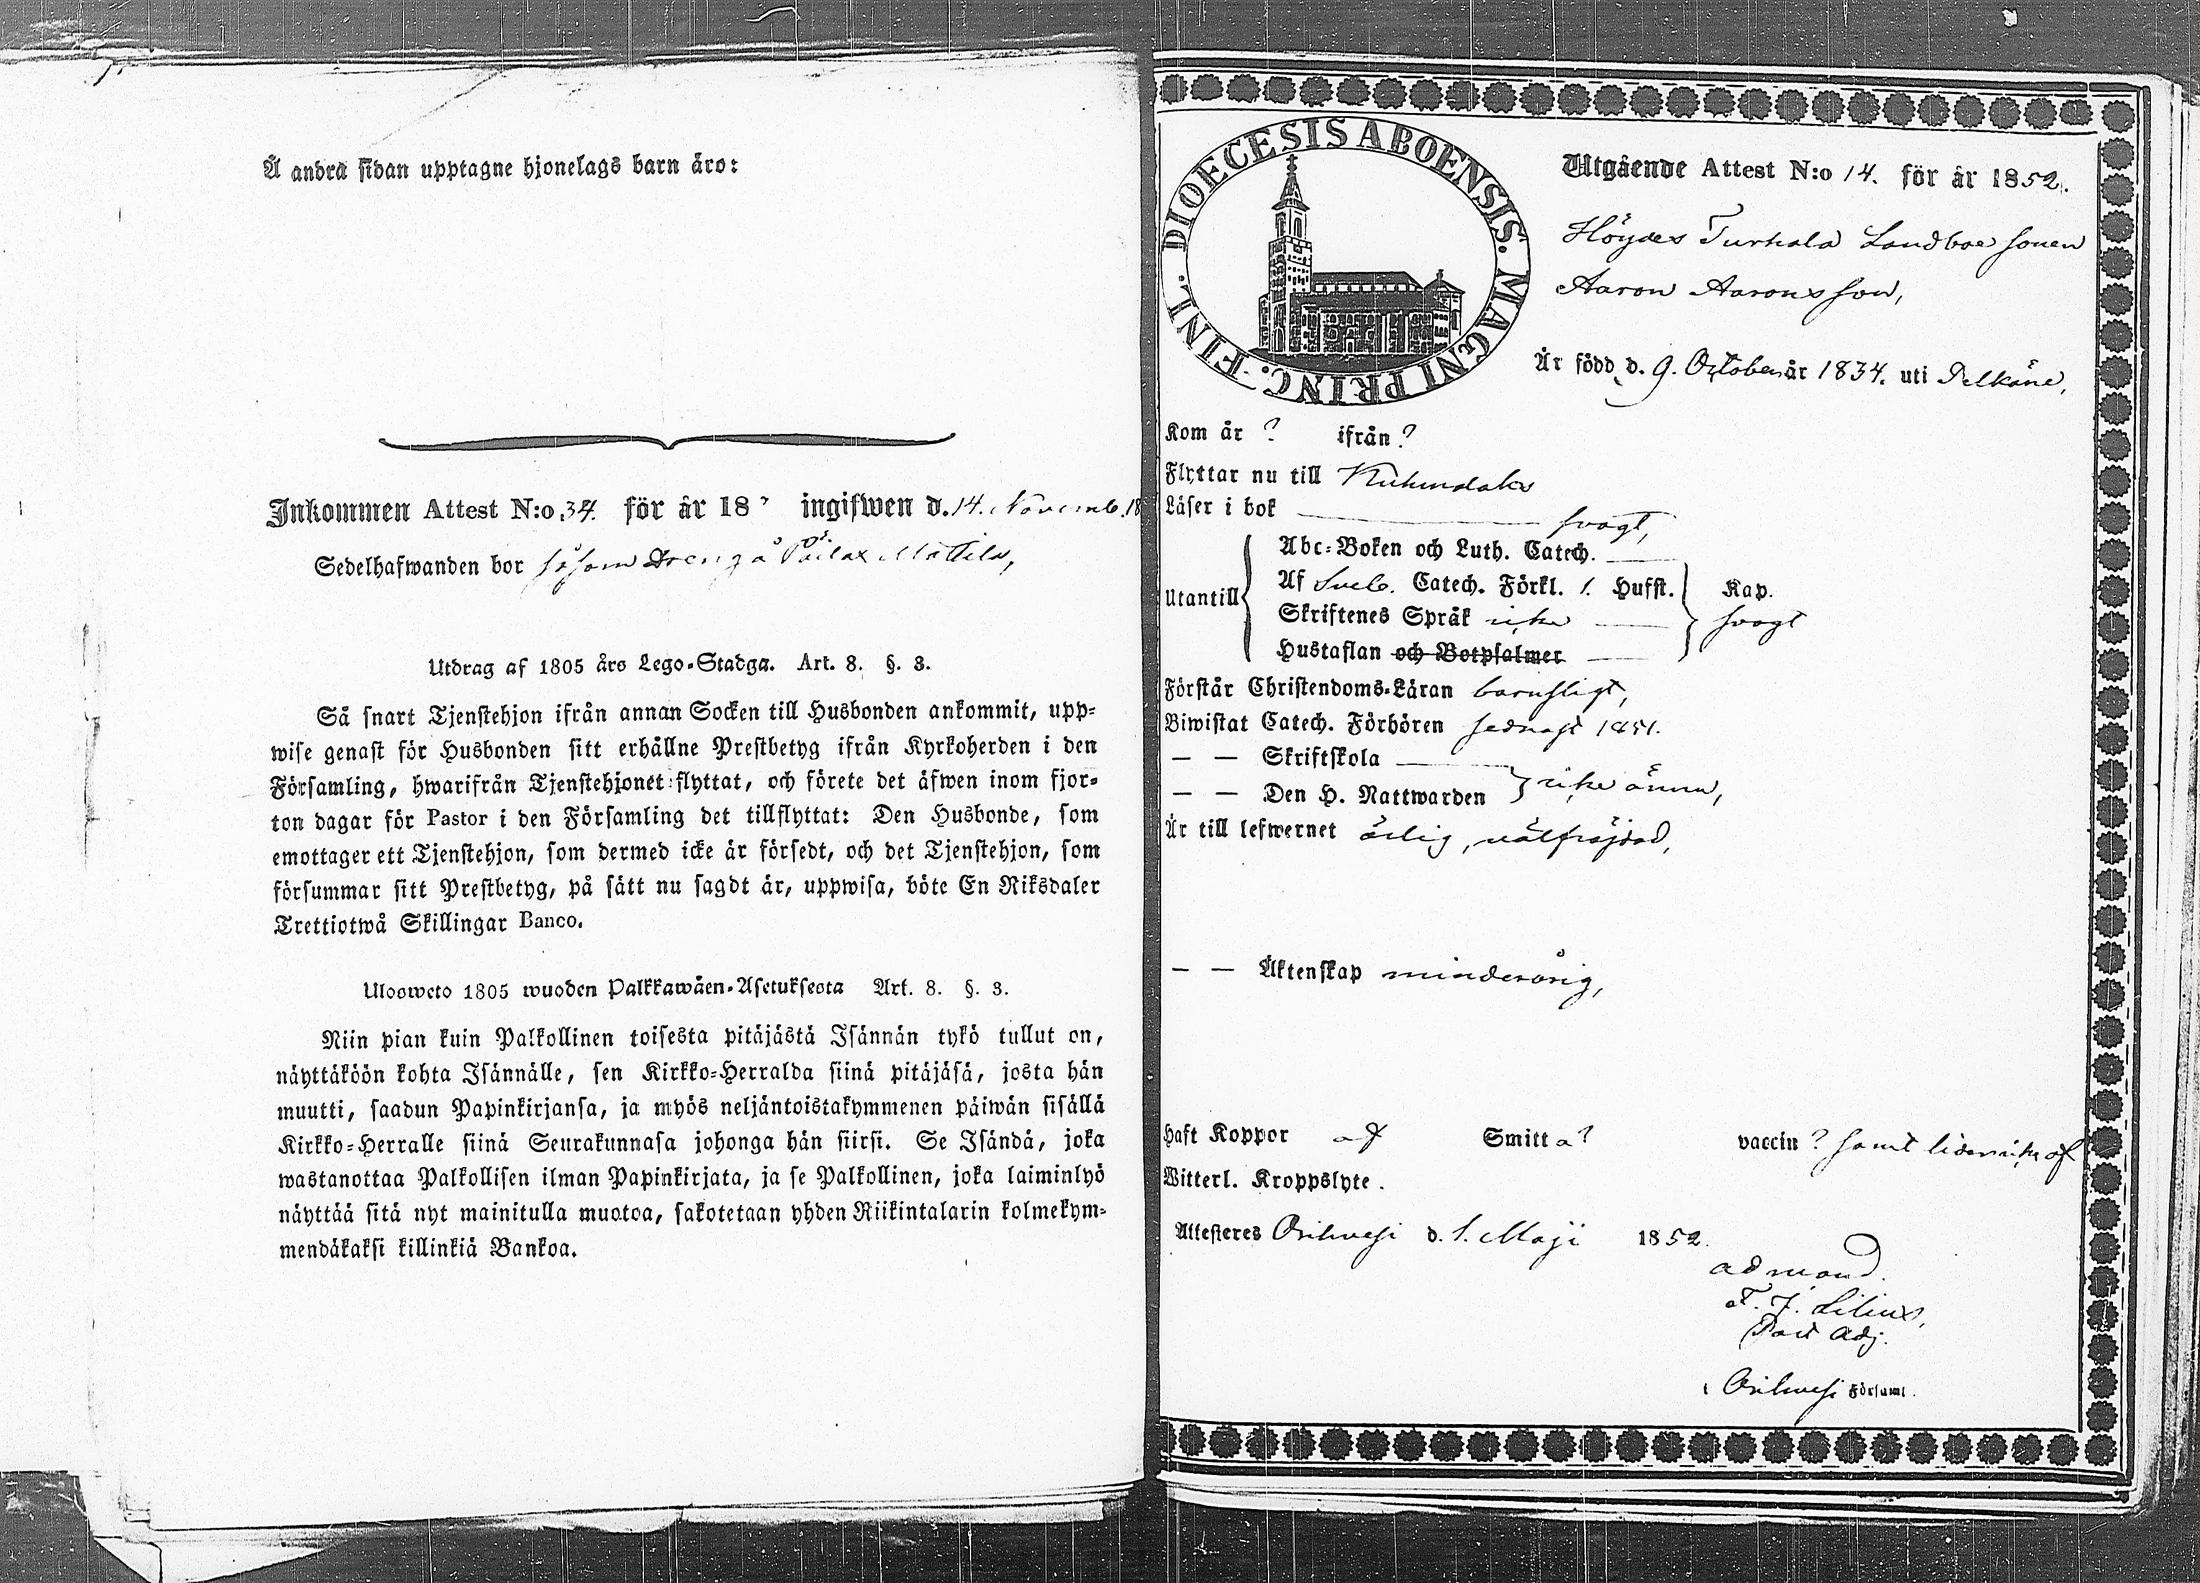 Å andra sidan upptagne hjonelags barn äro:
Inkommen Attest N:o 34. för år 18 ? ingifwen d. 14. Novemb. 18
Sedelhafwanden bor såsom Dreng å Mattila,
Utdrag af 1805 års Lego-Stadga. Art. 8. §. 3.
Så snart Tjenstehjon ifrån annan Socken till Husbonden ankommit, upp-
wise genast för Husbonden sitt erhållne Prestbetyg ifrån Kyrkoherden i den
Församling, hwarifrån Tjenstehjonet flyttat, och förete det äfwen inom fjor-
ton dagar för Pastor i den Församling det tillflyttat: Den Husbonde, som
emottager ett Tjenstehjon, som dermed icke är försedt, och det Tjenstehjon, som
försummar sitt Prestbetyg, på sätt nu sagdt är, uppwisa, böte En Riksdaler
Trettiotwå Skillingar Banco.
Ulosweto 1805 wuoden Palkkawäen-Asetuksesta Art. 8. §. 3.
Niin pian kuin Palkollinen toisesta pitäjästä Isännän tykö tullut on,
näyttäköön kohta Isännälle, sen Kirkko-Herralda siinä pitäjäsä, josta hän
muutti, saadun Papinkirjansa, ja myös neljäntoistakymmenen päiwän sisällä
Kirkko-Herralle siinä Seurakunnasa johonga hän siirsi. Se Isändä, joka
wastanottaa Palkollisen ilman Papinkirjata, ja se Palkollinen, joka laiminlyö
näyttää sitä nyt mainitulla muotoa, sakotetaan yhden Riikintalarin kolmekym-
mendäkaksi killinkiä Bankoa.
DIOECESIS ABOENSIS. MAGNI PRINC. FINL.
Utgående Attest N:o 14. för år 1852.
Höydes Turkala Landboe sonen
Aaron Aaronsson,
Är född d. 9. October år 1834. uti Pelkäne,
Kom år ? ifrån ?
Flyttar nu till Kuhmalaks
Läser i bok svagt,
Utantill
Abc-Boken och Luth. Catech.
Af Sveb. Catech. Förkl. 1. Hufst. Kap.
Skriftenes Språk icke svagt
Hustaflan och Botpsalmer
Förstår Christendoms-Läran barnsligt,
Biwistat Catech. Förhören sednast 1851.
— — Skriftskola
— — Den H. Nattwarden icke ännu,
Är till lefwernet ärlig, välfräjdad,
— — Äktenskap minderårig,
Haft Koppor af Smitta ? vaccin ? samt lider icke af
Witterl. Kroppslyte.
Attesteres Orihvesi d. 1. Maji 1852.
ad mand.
F. J. Lilius,
Past Adj.
i Orihvesi Församl.